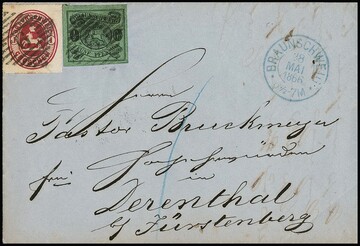 BRAUNSCHWEIG
28
MAI
1866
Herrn
Pastor Bruckmeyer
frei
in
Derenthal
b/ Fürstenberg